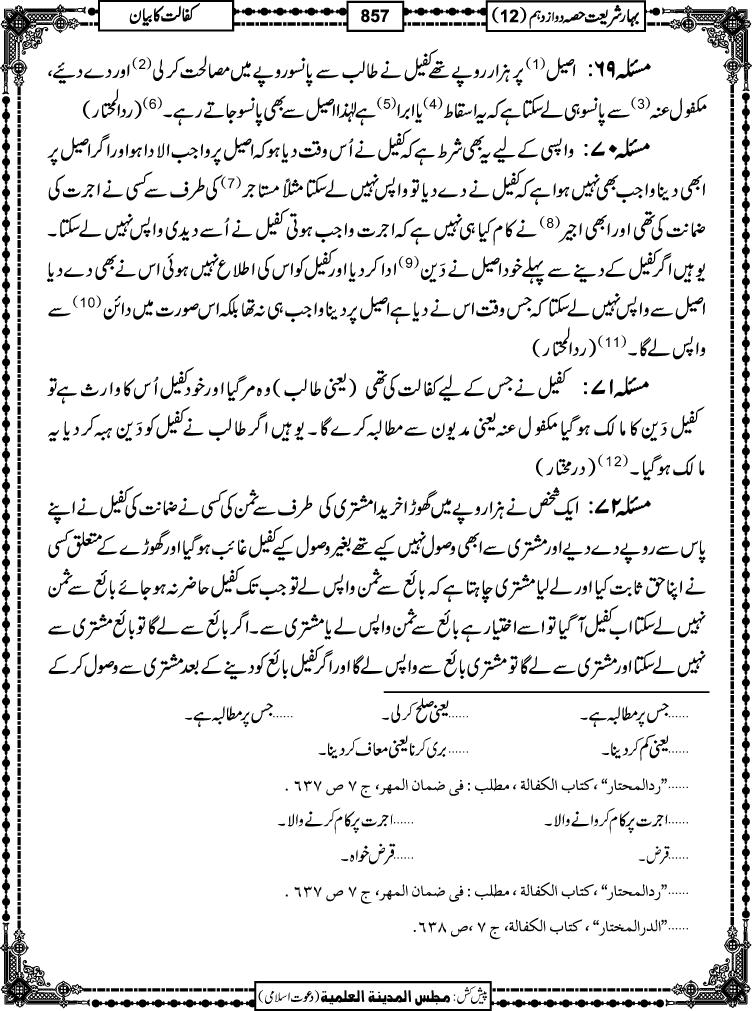 بہارِ شریعت حصہ دوازدہم (12)
857
کفالت کا بیان
مسئلہ ۶۹: اصیل(1) پر ہزار روپے تھے کفیل نے طالب سے پانسو روپے میں مصالحت کر لی(2) اور دے دئیے،
مکفول عنہ(3) سے پانسو ہی لے سکتا ہے کہ یہ اسقاط(4) یا ابرا(5) ہے لہٰذا اصیل سے بھی پانسو جاتے رہے۔(6) (ردالمحتار)
مسئلہ ۷۰: واپسی کے لیے یہ بھی شرط ہے کہ کفیل نے اُس وقت دیا ہو کہ اصیل پر واجب الادا ہو اور اگر اصیل پر
ابھی دینا واجب بھی نہیں ہوا ہے کہ کفیل نے دے دیا تو واپس نہیں لے سکتا مثلاً مستاجر(7) کی طرف سے کسی نے اجرت کی
ضمانت کی تھی اور ابھی اجیر(8) نے کام کیا ہی نہیں ہے کہ اجرت واجب ہوتی کفیل نے اُسے دیدی واپس نہیں لے سکتا۔
یوہیں اگر کفیل کے دینے سے پہلے خود اصیل نے دَین(9) ادا کر دیا اور کفیل کو اس کی اطلاع نہیں ہوئی اس نے بھی دے دیا
اصیل سے واپس نہیں لے سکتا کہ جس وقت اس نے دیا ہے اصیل پر دینا واجب ہی نہ تھا بلکہ اس صورت میں دائن(10) سے
واپس لے گا۔(11) (ردالمحتار)
مسئلہ ۷۱: کفیل نے جس کے لیے کفالت کی تھی (یعنی طالب) وہ مر گیا اور خود کفیل اُس کا وارث ہے تو
کفیل دَین کا مالک ہو گیا مکفول عنہ یعنی مدیون سے مطالبہ کرے گا۔ یوہیں اگر طالب نے کفیل کو دَین ہبہ کر دیا یہ
مالک ہو گیا۔(12) (درمختار)
مسئلہ ۷۲: ایک شخص نے ہزار روپے میں گھوڑا خریدا مشتری کی طرف سے ثمن کی کسی نے ضمانت کی کفیل نے اپنے
پاس سے روپے دے دیے اور مشتری سے ابھی وصول نہیں کیے تھے بغیر وصول کیے کفیل غائب ہو گیا اور گھوڑے کے متعلق کسی
نے اپنا حق ثابت کیا اور لے لیا مشتری چاہتا ہے کہ بائع سے ثمن واپس لے تو جب تک کفیل حاضر نہ ہو جائے بائع سے ثمن
نہیں لے سکتا اب کفیل آ گیا تو اسے اختیار ہے بائع سے ثمن واپس لے یا مشتری سے۔ اگر بائع سے لے گا تو بائع مشتری سے
نہیں لے سکتا اور مشتری سے لے گا تو مشتری بائع سے واپس لے گا اور اگر کفیل بائع کو دینے کے بعد مشتری سے وصول کر کے
......جس پر مطالبہ ہے۔ ......یعنی صلح کر لی۔ ......جس پر مطالبہ ہے۔
......یعنی کم کر دینا۔ ......بری کرنا یعنی معاف کر دینا۔
......”ردالمحتار“ ،کتاب الکفالۃ ، مطلب : فی ضمان المھر، ج ۷ ص ۶۳۷ .
......اجرت پر کام کروانے والا۔ ......اجرت پر کام کرنے والا۔
......قرض۔ ......قرض خواہ۔
......”ردالمحتار“ ،کتاب الکفالۃ ، مطلب : فی ضمان المھر، ج ۷ ص ۶۳۷ .
......”الدرالمختار“ ، کتاب الکفالۃ، ج ۷ ،ص ۶۳۸.
پیش کش: مجلس المدینۃ العلمیۃ (دعوت اسلامی)